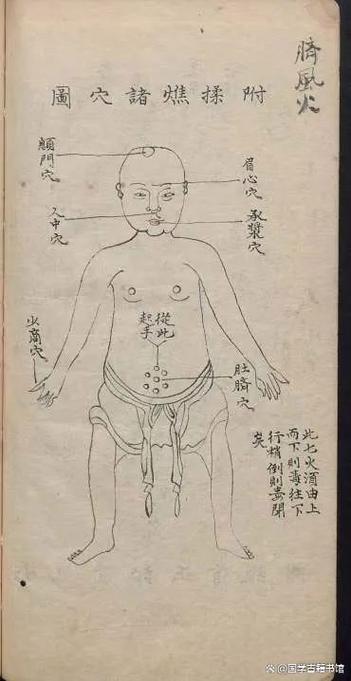 臍風火
附揉燋諸穴圖
眉心穴
承漿穴
顖門穴
人中穴
少商穴
從此
起手
肚臍穴
此七火須由上
而下則毒往下
行稍倒則毒聞
矣
国学古籍书馆